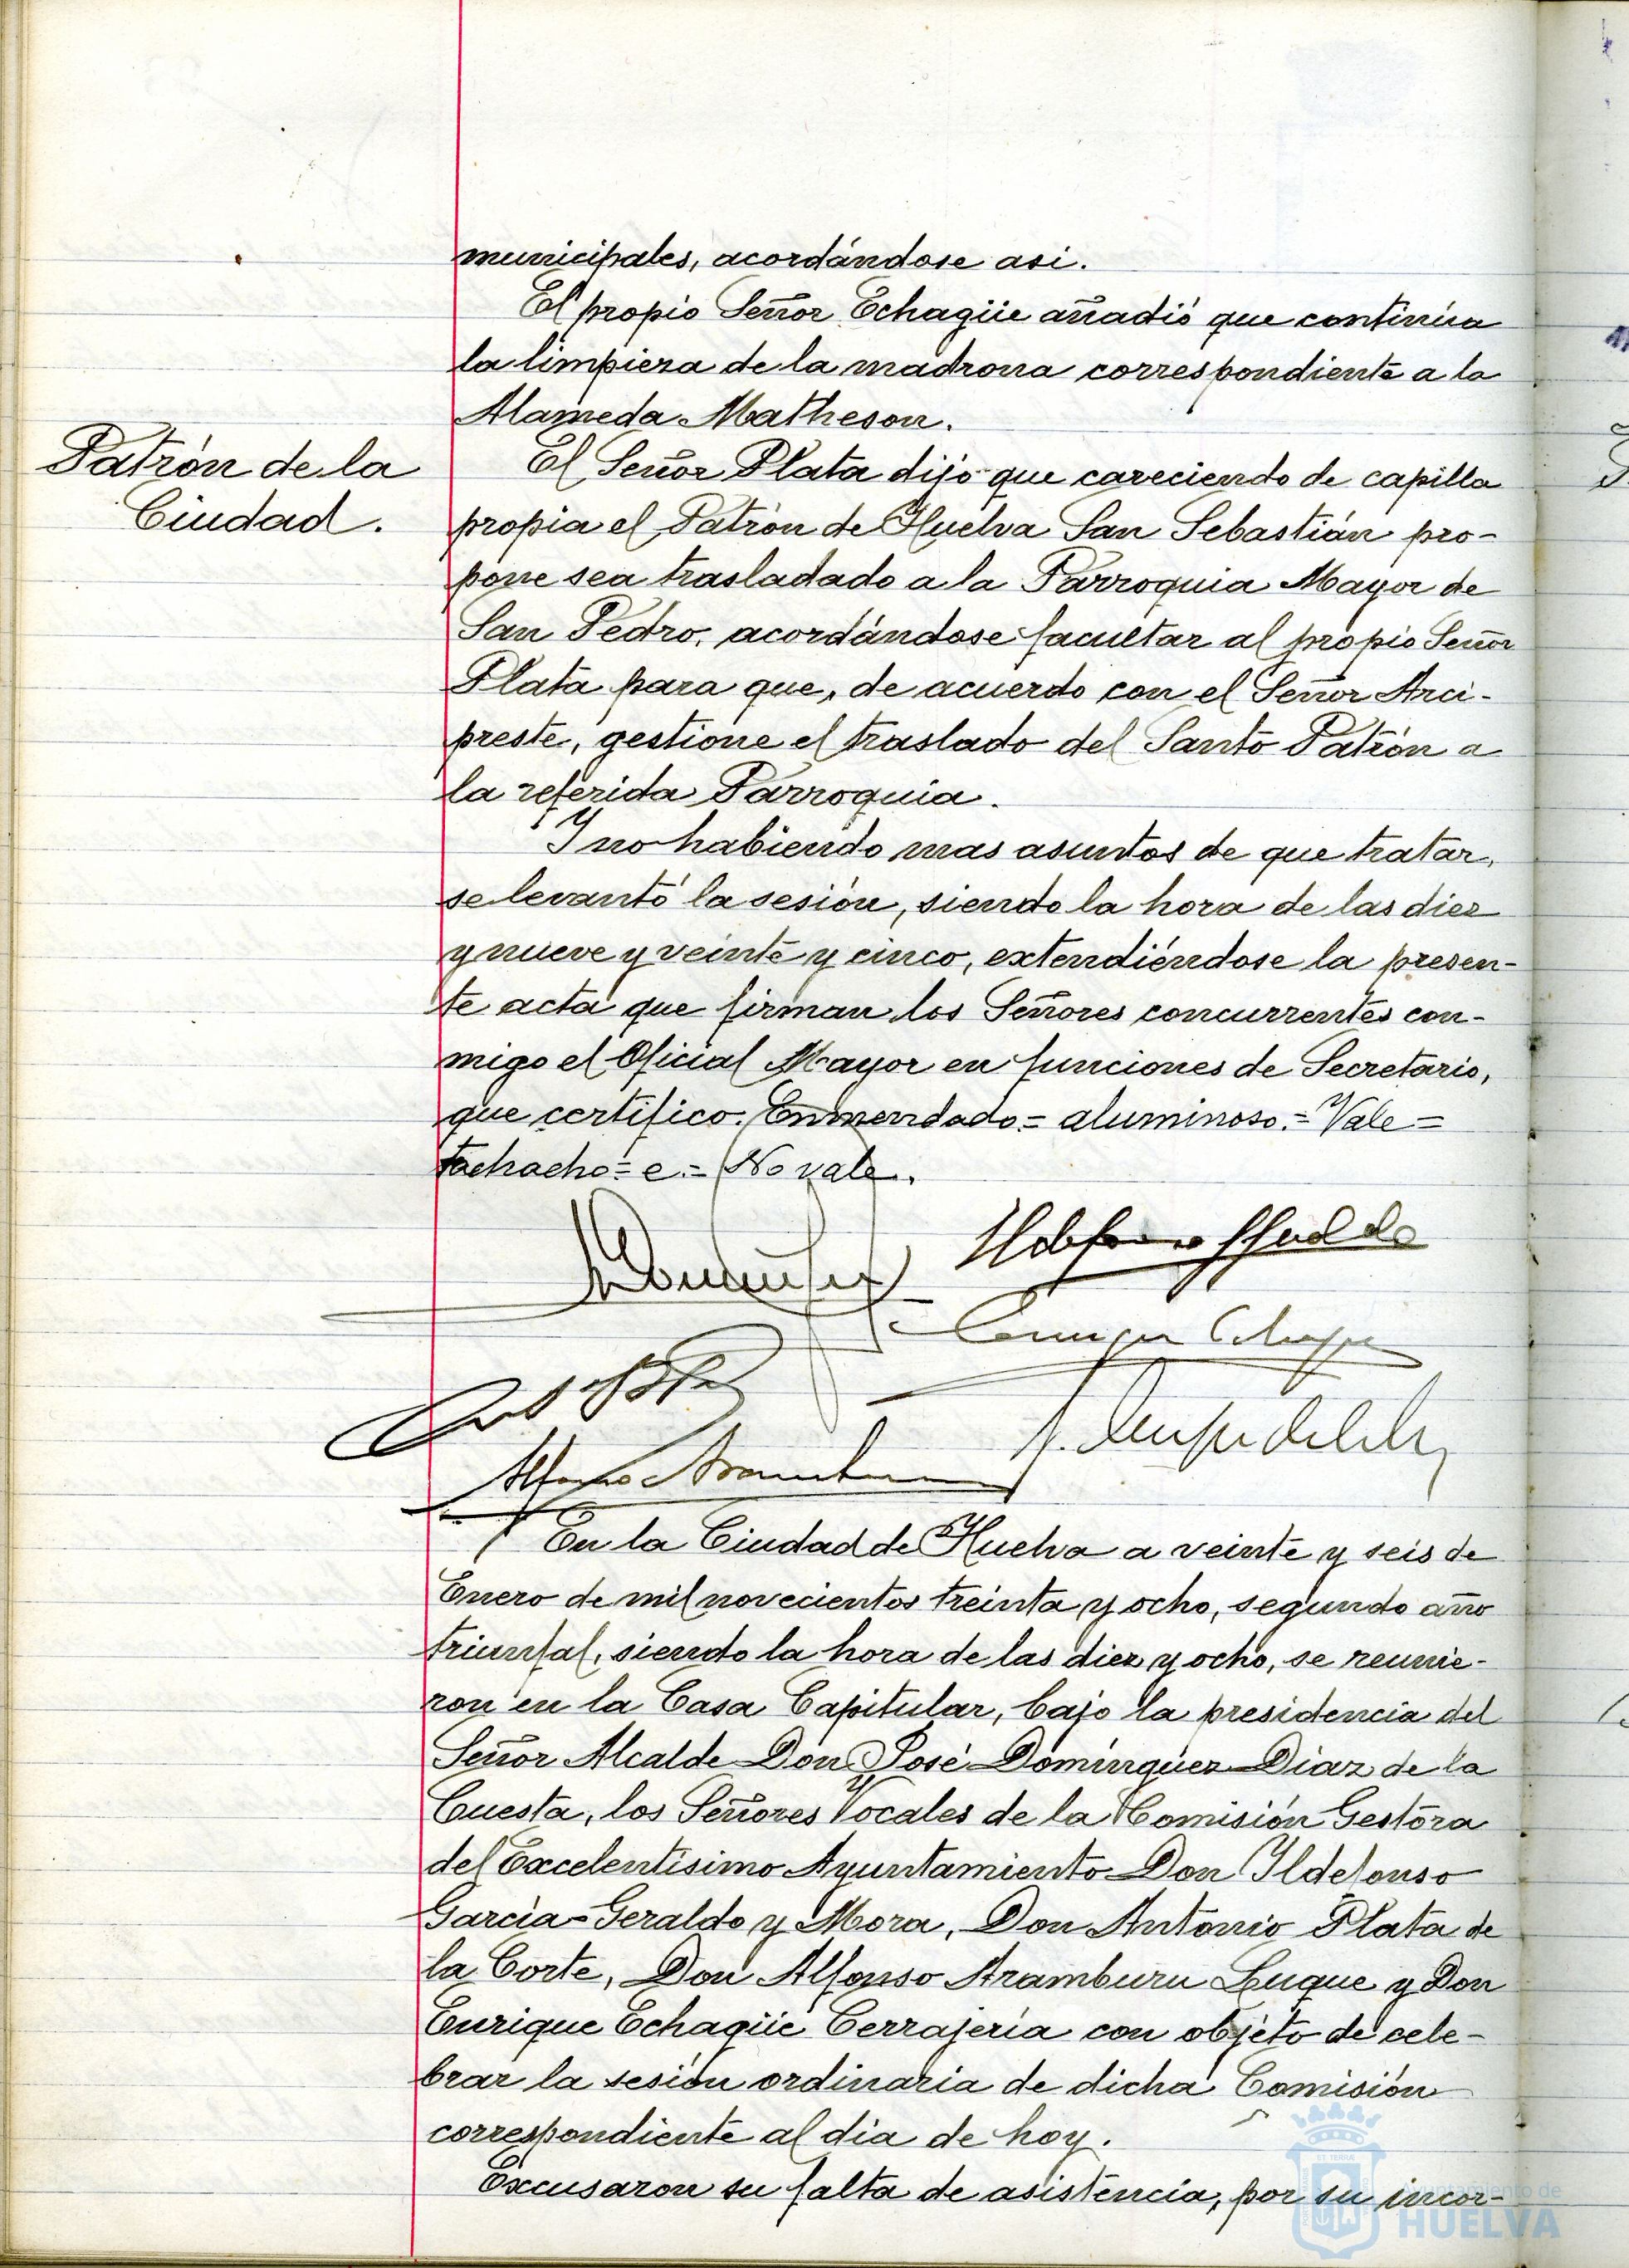 municipales, acordándose asi.
El propio Señor Echagüe añadió que continúa
la limpieza de la madrona correspondiente a la
Alameda Matheson.
Patrón de la
Ciudad.
El Señor Plata dijo que careciendo de capilla
propia el Patrón de Huelva San Sebastián pro-
pone sea trasladado a la Parroquia Mayor de
San Pedro, acordándose facultar al propio Señor
Plata para que, de acuerdo con el Señor Arci-
preste, gestione el traslado del Santo Patrón a
la referida Parroquia.
Y no habiendo mas asuntos de que tratar,
se levantó la sesión, siendo la hora de las diez
y nueve y veinte y cinco, extendiéndose la presen-
te acta que firman los Señores concurrentes con-
migo el Oficial Mayor en funciones de Secretario,
que certifico. Enmendado = aluminoso. = Vale =
tachacho = e. = No vale.
Alfonso Aramburu
En la Ciudad de Huelva a veinte y seis de
Enero de mil novecientos treinta y ocho, segundo año
triunfal, siendo la hora de las diez y ocho, se reunie-
ron en la Casa Capitular, bajo la presidencia del
Señor Alcalde Don José Domínguez Díaz de la
Cuesta, los Señores Vocales de la Comisión Gestora
del Excelentísimo Ayuntamiento Don Ildefonso
García-Geraldo y Mora, Don Antonio Plata de
la Corte, Don Alfonso Aramburu Luque y Don
Enrique Echagüe Cerrajería con objeto de cele-
brar la sesión ordinaria de dicha Comisión
correspondiente al dia de hoy.
Excusaron su falta de asistencia, por su incor-
Ayuntamiento de
HUELVA